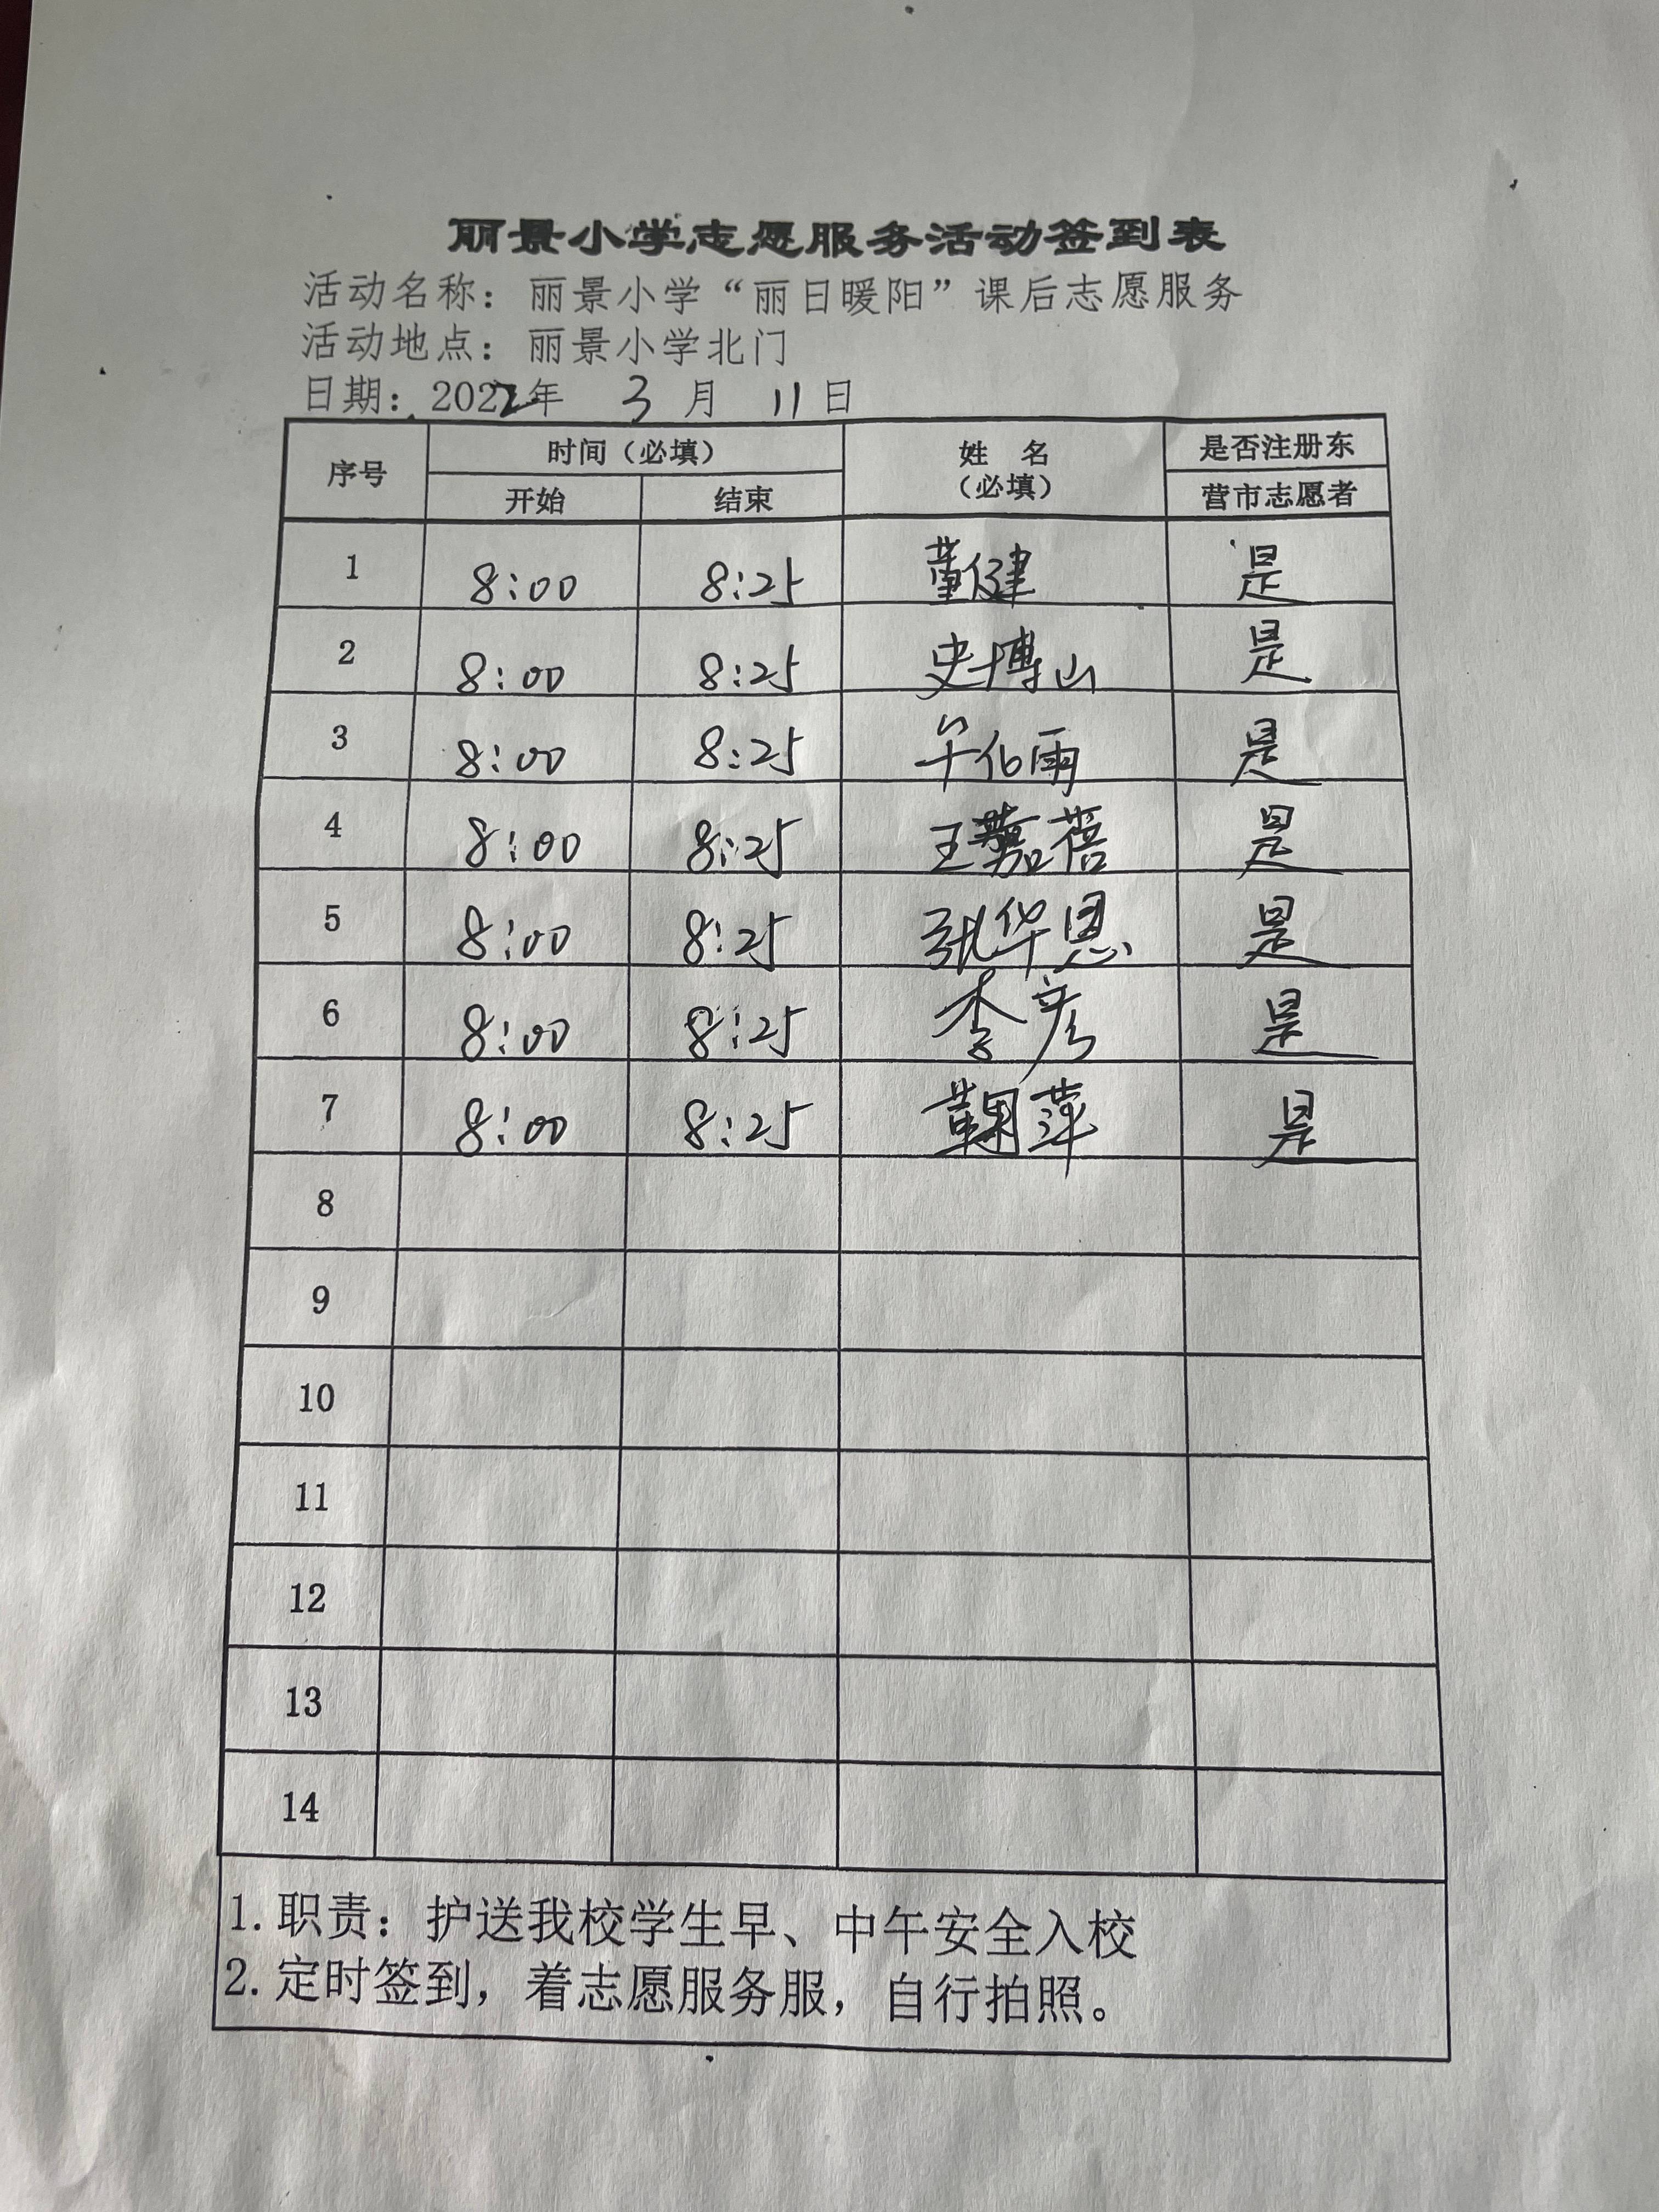 丽景小学志愿服务活动签到表
活动名称：丽景小学“丽日暖阳”课后志愿服务
活动地点：丽景小学北门
日期：2022年 3 月 11 日
序号 时间（必填） 姓 名（必填） 是否注册东营市志愿者
开始 结束
1 8:00 8:25 董健 是
2 8:00 8:25 史博山 是
3 8:00 8:25 是
4 8:00 8:25 王嘉蓓 是
5 8:00 8:25 张华恩 是
6 8:00 8:25 李彦 是
7 8:00 8:25 萍 是
8
9
10
11
12
13
14
1.职责：护送我校学生早、中午安全入校
2.定时签到，着志愿服务服，自行拍照。